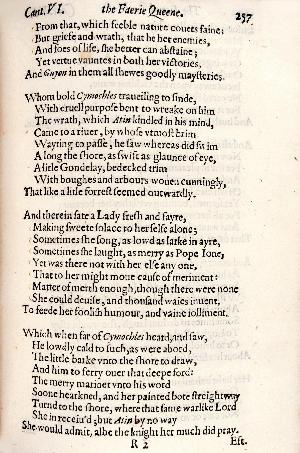 Cant. VI. the Faerie Queene. 257
From that, which feeble nature couets faine;
But griefe and wrath, that be her enemies,
And foes of life, she better can abstaine;
Yet vertue vauntes in both her victories,
And Guyon in them all shewes goodly maysteries.
Whom bold Cymochles traueiling to finde,
With cruell purpose bent to wreake on him
The wrath, which Atin kindled in his mind,
Came to a riuer, by whose vtmost brim
Wayting to passe, he saw whereas did swim
A long the shore, as swift as glaunce of eye,
A litle Gondelay, bedecked trim
With boughes and arbours wouen cunningly,
That like a litle forrest seemed outwardly.
And therein sate a Lady fresh and fayre,
Making sweete solace to herselfe alone;
Sometimes she song, as lowd as larke in ayre,
Sometimes she laught, as merry as Pope Ione,
Yet was there not with her else any one,
That to her might moue cause of meriment:
Matter of merth enough, though there were none
She could deuise, and thousand waies inuent,
To feede her foolish humour, and vaine iolliment.
Which when far of Cymochles heard, and saw,
He lowdly cald to such, as were abord,
The little barke vnto the shore to draw,
And him to ferry ouer that deepe ford:
The merry mariner vnto his word
Soone hearkned, and her painted bote streightway
Turnd to the shore, where that same warlike Lord
She in receiu'd; but Atin by no way
She would admit, albe the knight her much did pray.
R 2 Eft.